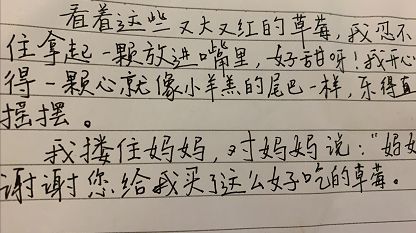 看着这些又大又红的草莓,我忍不
住拿起一颗放进嘴里,好甜呀!我开心
得一颗心就像小羊羔的尾巴一样,乐得直
摇摆。
我搂住妈妈,对妈妈说:“妈妈
谢谢您给我买了这么好吃的草莓。